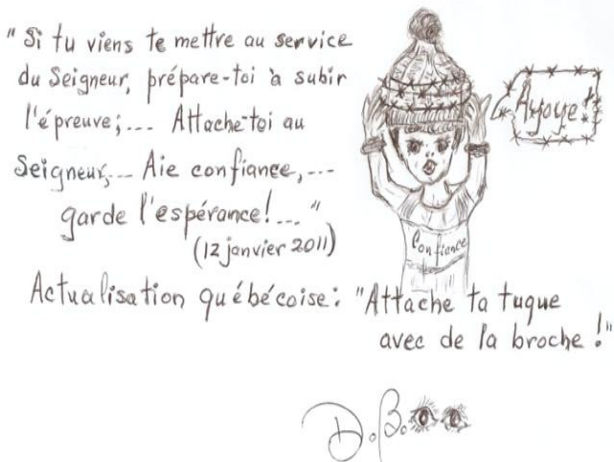 "Si tu viens te mettre au service
du Seigneur, prépare-toi à subir
l'épreuve;... Attache-toi au
Seigneur,... Aie confiance,...
garde l'espérance!..."
(12 janvier 2011)
Ayoye!
Confiance
Actualisation québécoise: "Attache ta tuque
avec de la broche!"
D.B.